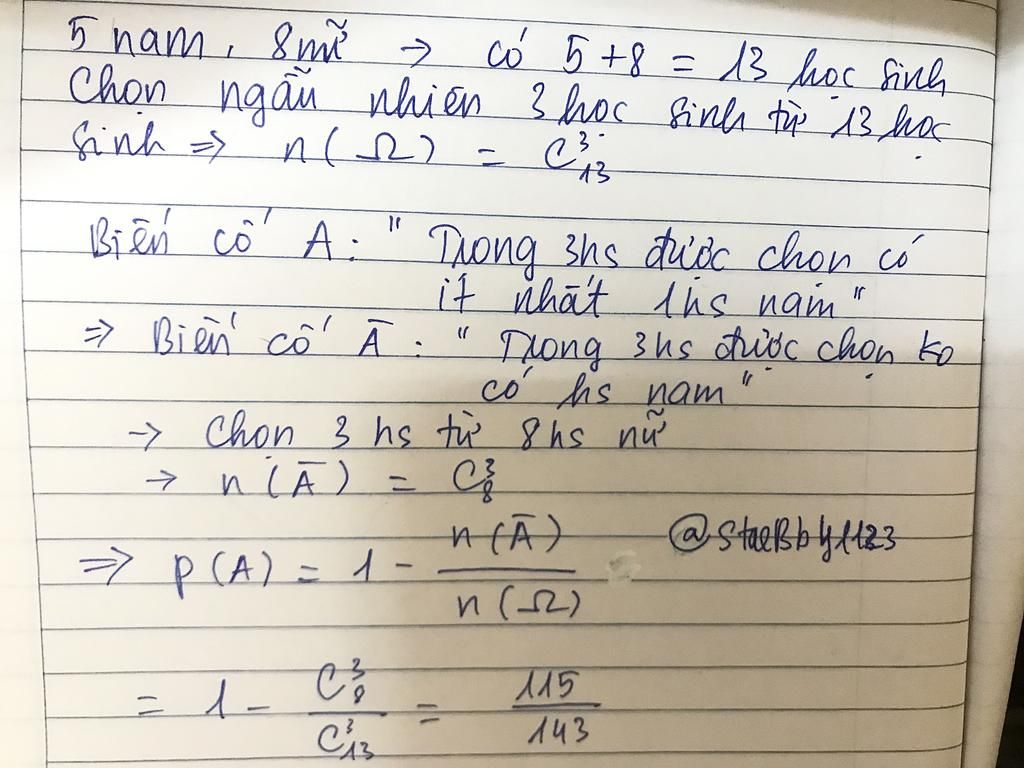 5 nam, 8 nữ → có 5 + 8 = 13 học sinh
Chọn ngẫu nhiên 3 học sinh từ 13 học
sinh => n(Ω) = C³₁₃
Biến cố A : " Trong 3hs được chọn có
ít nhất 1hs nam "
=> Biến cố Ā : " Trong 3hs được chọn ko
có hs nam "
→ Chọn 3 hs từ 8hs nữ
→ n(Ā) = C³₈
=> p(A) = 1 - n(Ā) / n(Ω)
@StaeBby1123
= 1 - C³₈ / C³₁₃ = 115 / 143